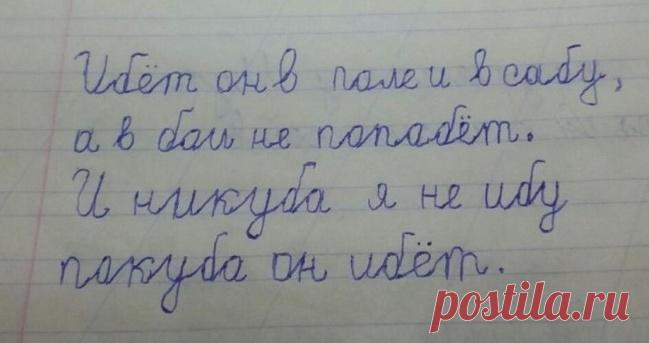 Ибёт он в поле и в сабу,
а в бом не попабёт.
И никуба я не ибу
покуба он ибёт.
postila.ru